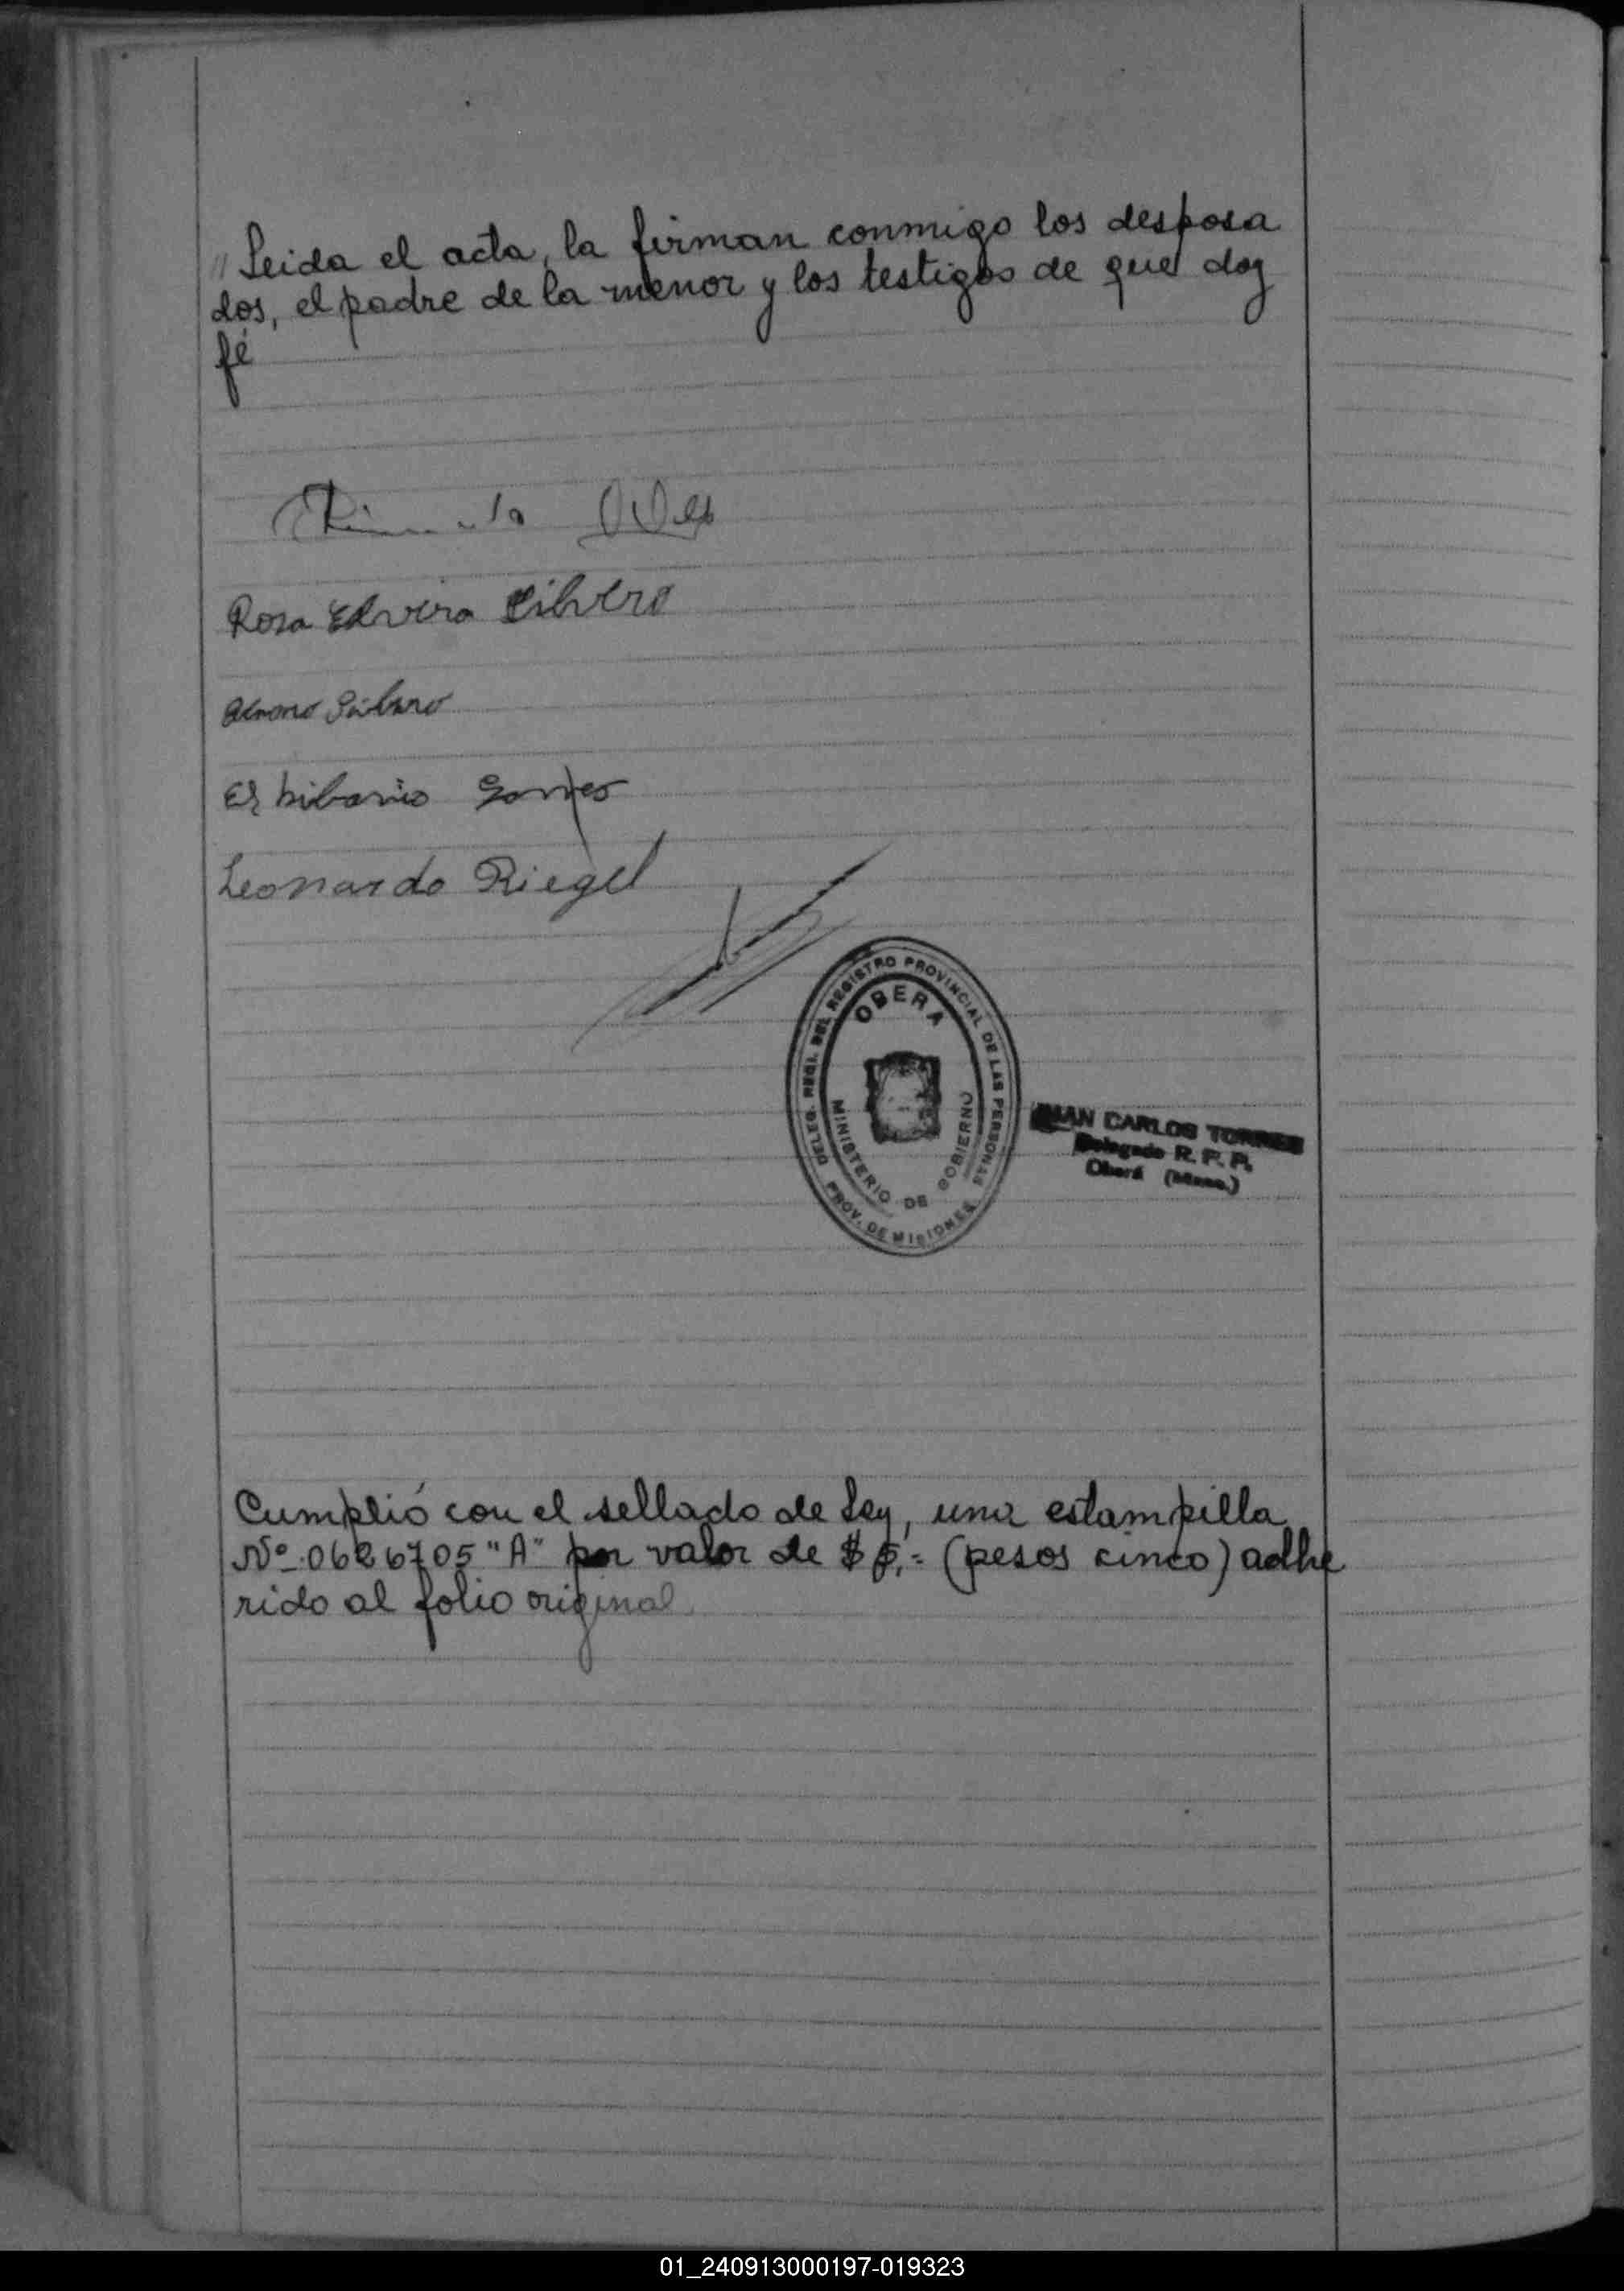 " Leida el acta, la firman conmigo los desposa
dos, el padre de la menor y los testigos de que doy
fé
Rosa Elvira
Leonardo Riegel
DELEG. REGI. DEL REGISTRO PROVINCIAL DE LAS PERSONAS
OBERA
MINISTERIO DE GOBIERNO
PROV. DE MISIONES
JUAN CARLOS TORRES
Delegado R. P. P.
Oberá (Mnes.)
Cumplió con el sellado de Ley, una estampilla
Nº 0626705 "A" por valor de $ 5,= (pesos cinco) adhe
rido al folio original
01_240913000197-019323